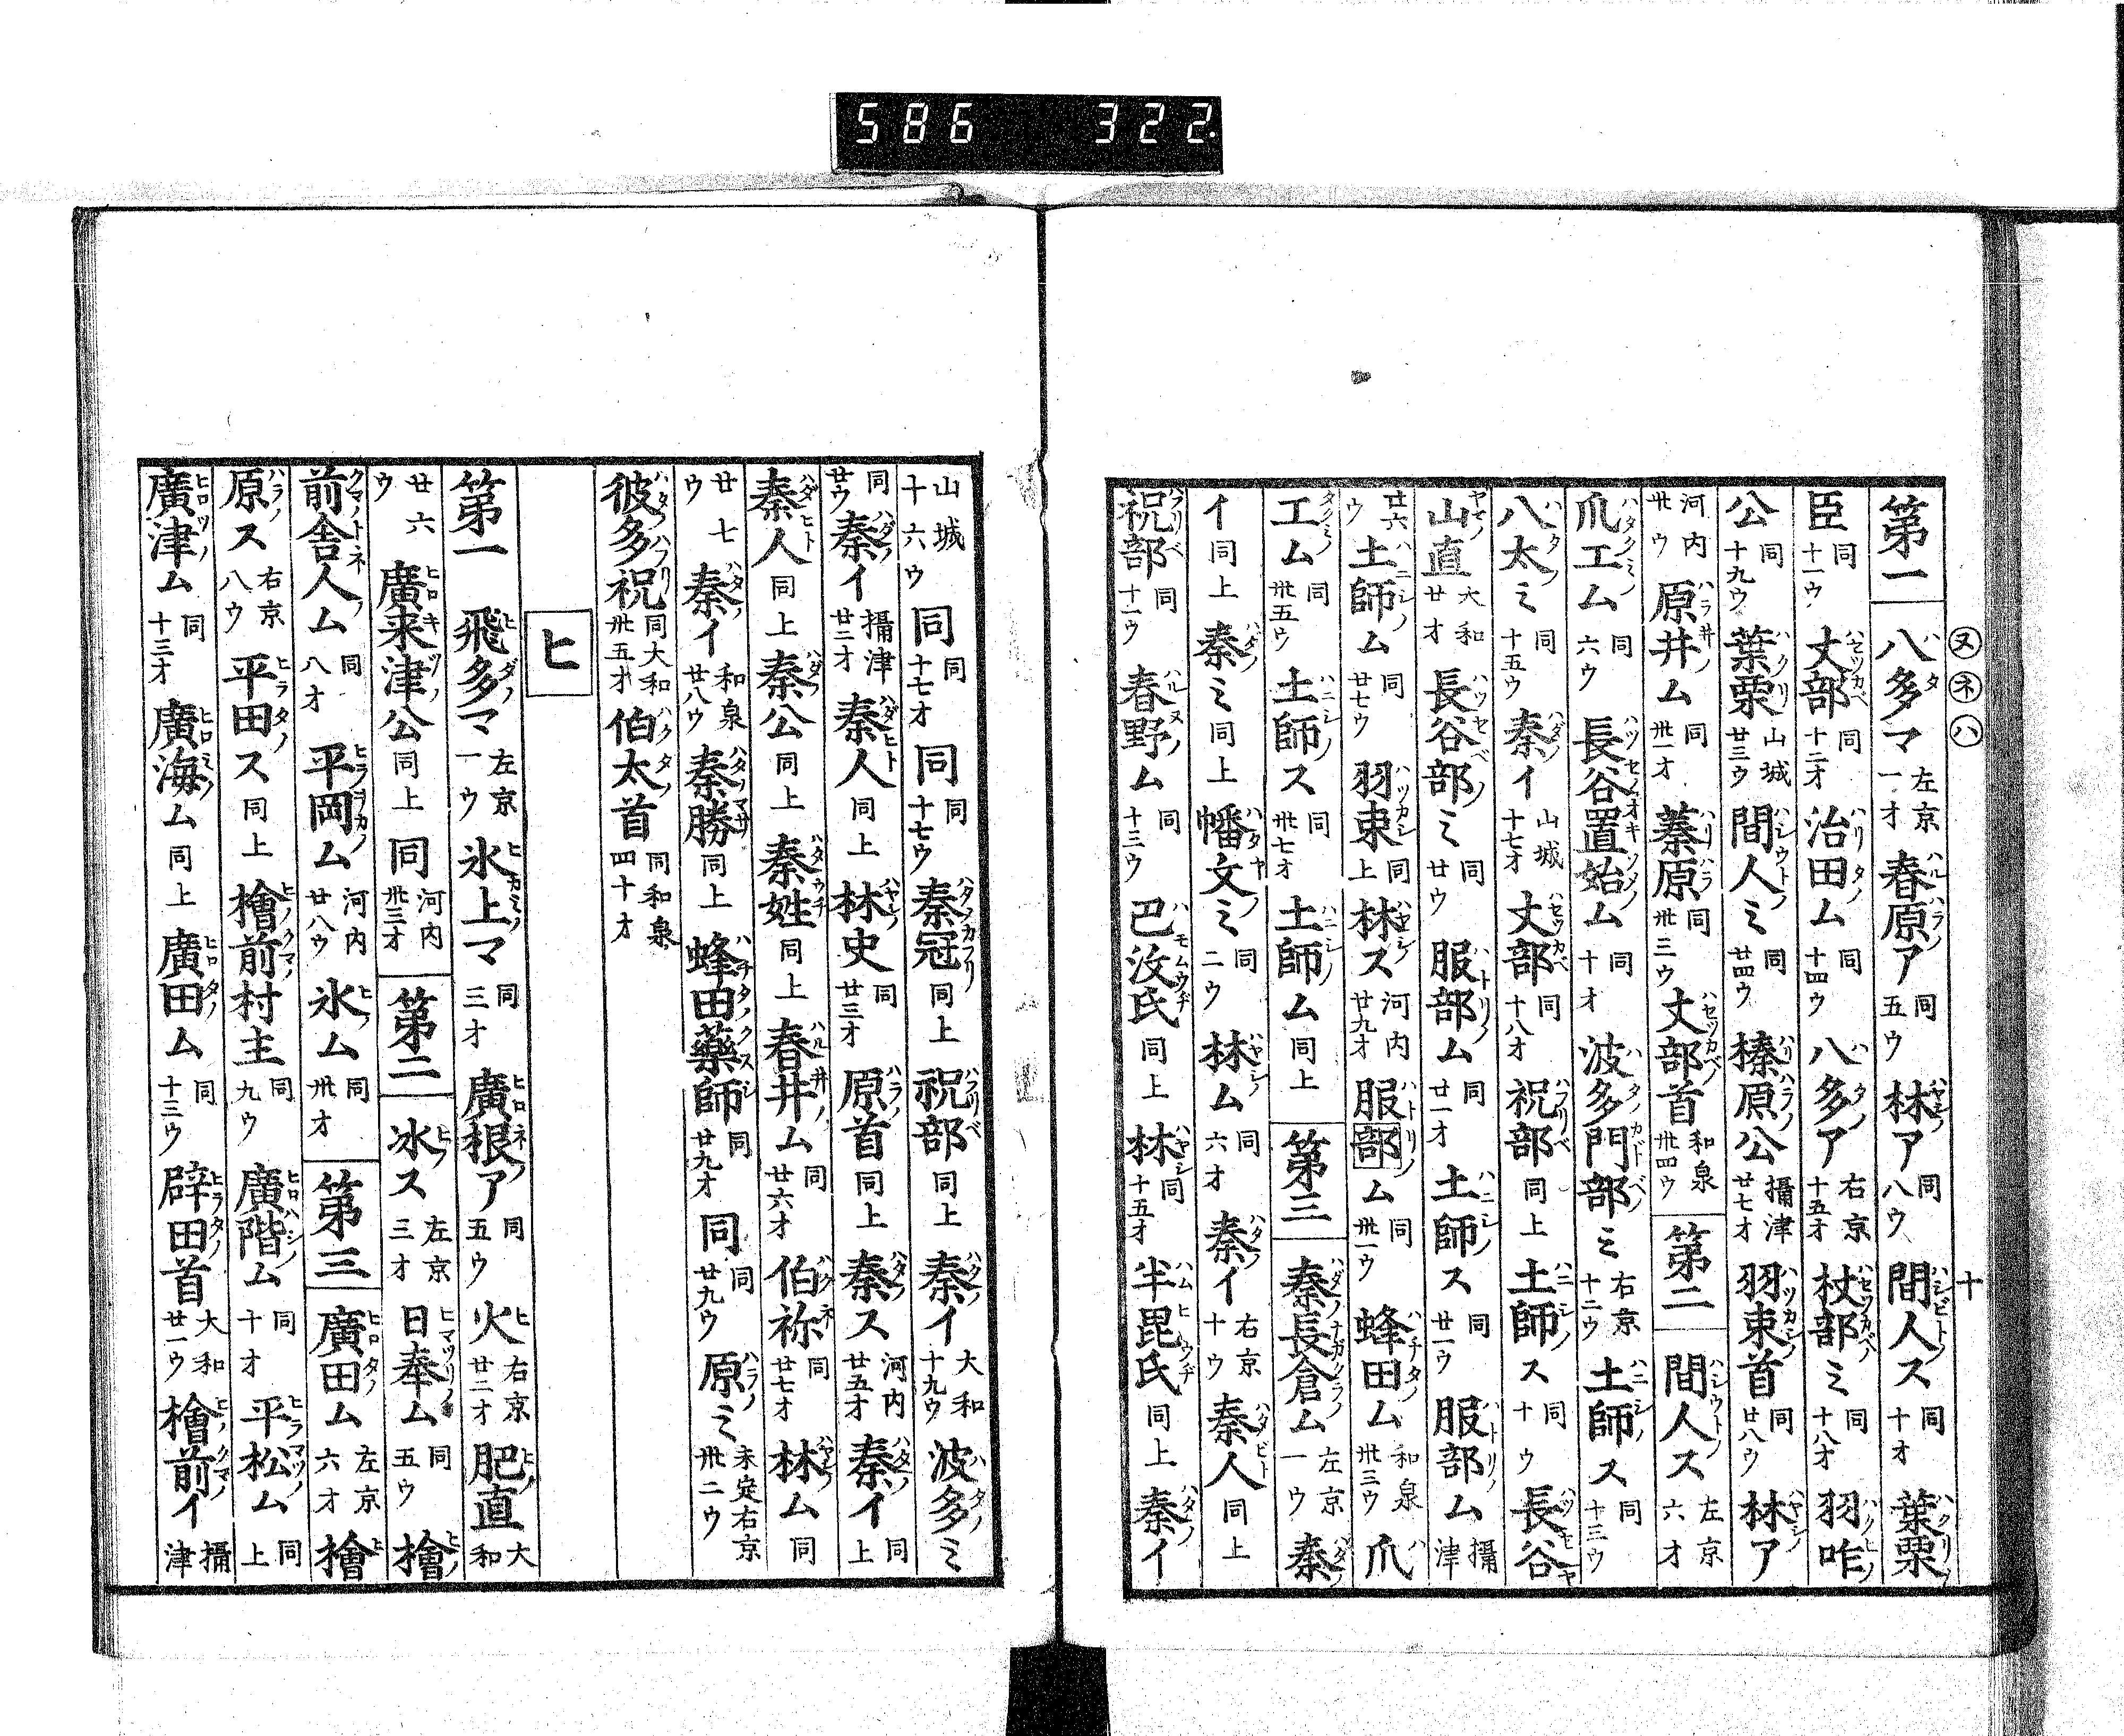 586 322.
ヌネハ 十
第一 八多マ 左京一オ 春原ア 同五ウ 林ア 同八ウ 間人ス 同十オ 葉栗
臣 同十一ウ 丈部 同十二オ 治田ム 同十四ウ 八多ア 右京十五オ 杖部ミ 同十八オ 羽咋
公 同十九ウ 葉栗 山城廿三ウ 間人ミ 同廿四ウ 榛原公 攝津廿七オ 羽束首 同廿八ウ 林ア
河内卅ウ 原井ム 同卅一オ 蓁原 同卅二ウ 丈部首 和泉卅四ウ 第二 間人ス 左京六オ
爪工ム 同六ウ 長谷置始ム 同十オ 波多門部ミ 右京十二ウ 土師ス 同十三ウ
八太ミ 同十五ウ 秦イ 山城十七オ 丈部 同十八オ 祝部 同上 土師ス 同十ウ 長谷
山直 大和廿オ 長谷部ミ 同廿ウ 服部ム 同廿一オ 土師ス 同廿一ウ 服部ム 攝津
廿六ウ 土師ム 同廿七ウ 羽束 同上 林ス 河内廿九オ 服部ム 同卅一ウ 蜂田ム 和泉卅三ウ 爪
工ム 同卅五ウ 土師ス 同卅七オ 土師ム 同上 第三 秦長倉ム 左京一ウ 秦
イ 同上 秦ミ 同上 幡文ミ 同二ウ 林ム 同六オ 秦イ 右京十ウ 秦人 同上
祝部 同十一ウ 春野ム 同十三ウ 巴汶氏 同上 林 同十五オ 半毘氏 同上 秦イ
山城十六ウ 同 同十七オ 同 同十七ウ 秦冠 同上 祝部 同上 秦イ 大和十九ウ 波多ミ
同廿ウ 秦イ 攝津廿二オ 秦人 同上 林史 同廿三オ 原首 同上 秦ス 河内廿五オ 秦イ 同上
秦人 同上 秦公 同上 秦姓 同上 春井ム 同廿六オ 伯祢 同廿七オ 林ム 同
廿七ウ 秦イ 和泉廿八ウ 秦勝 同上 蜂田藥師 同廿九オ 同 同廿九ウ 原ミ 未定右京卅二ウ
彼多祝 同大和卅五オ 伯太首 同和泉四十オ
ヒ
第一 飛多マ 左京一ウ 氷上マ 同三オ 廣根ア 同五ウ 火 右京廿二オ 肥直 大和
廿六ウ 廣来津公 同上 同 河内卅三オ 第二 氷ス 左京三オ 日奉ム 同五ウ 檜
前舎人ム 同八オ 平岡ム 河内廿八ウ 氷ム 同卅オ 第三 廣田ム 左京六オ 檜
原ス 右京八ウ 平田ス 同上 檜前村主 同九ウ 廣階ム 同十オ 平松ム 同上
廣津ム 同十三オ 廣海ム 同上 廣田ム 同十三ウ 辟田首 大和廿一ウ 檜前イ 攝津